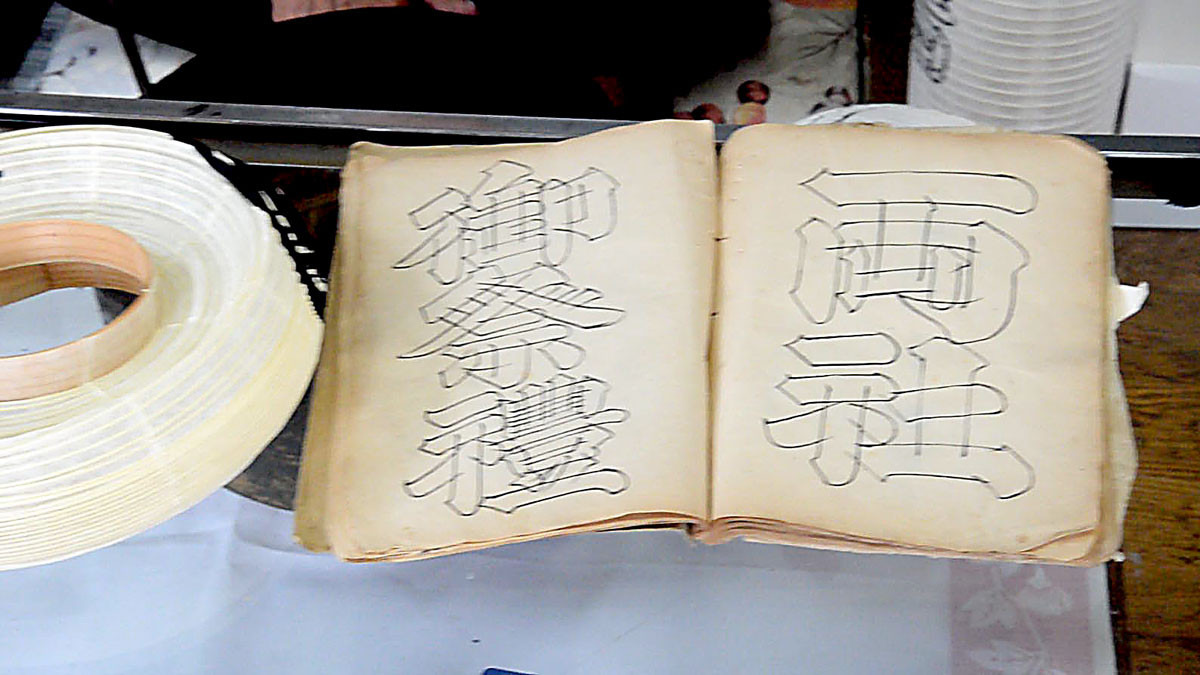 両社
御祭禮